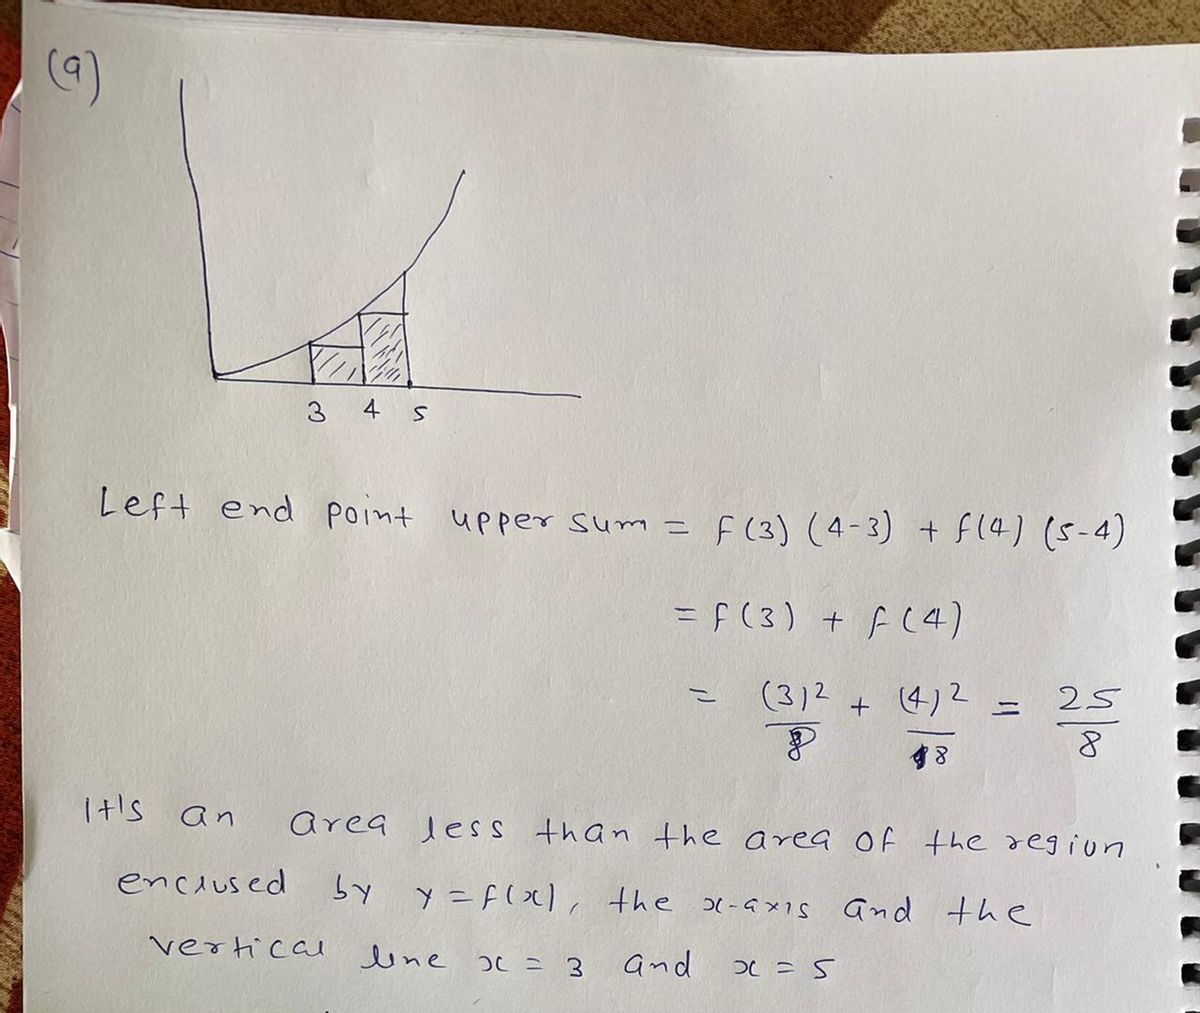 (a)
3 4 5
Left end point upper sum = f(3) (4-3) + f(4) (5-4)
= f(3) + f(4)
= (3)²/8 + (4)²/8 = 25/8
It's an area less than the area of the region
enclused by y = f(x), the x-axis and the
vertical line x = 3 and x = 5